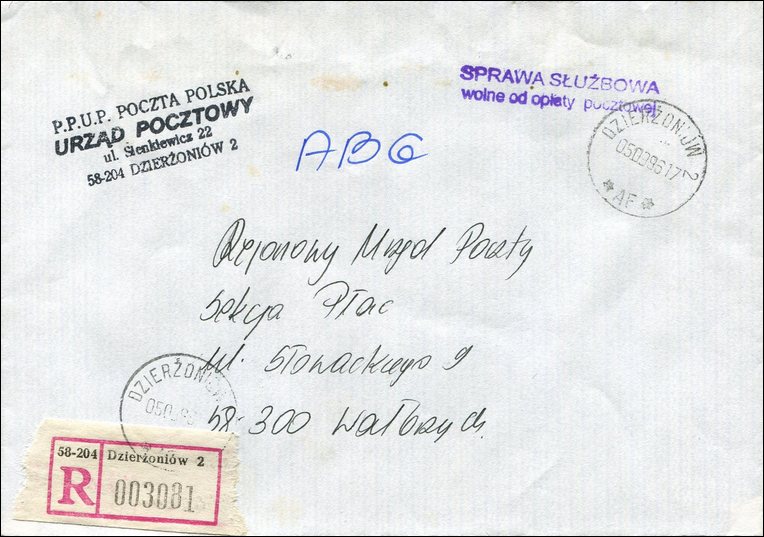 P.P.U.P. POCZTA POLSKA
URZĄD POCZTOWY
ul. Sienkiewicz 22
58-204 DZIERŻONIÓW 2
SPRAWA SŁUŻBOWA
wolne od opłaty pocztowej
DZIERŻONIÓW 2
AF
ABG
Rejonowy Urząd Poczty
Sekcja Płac
ul. Słowackiego 9
58-300 Wałbrzych.
DZIERŻONIÓW
58-204 Dzierżoniów 2
R 003081